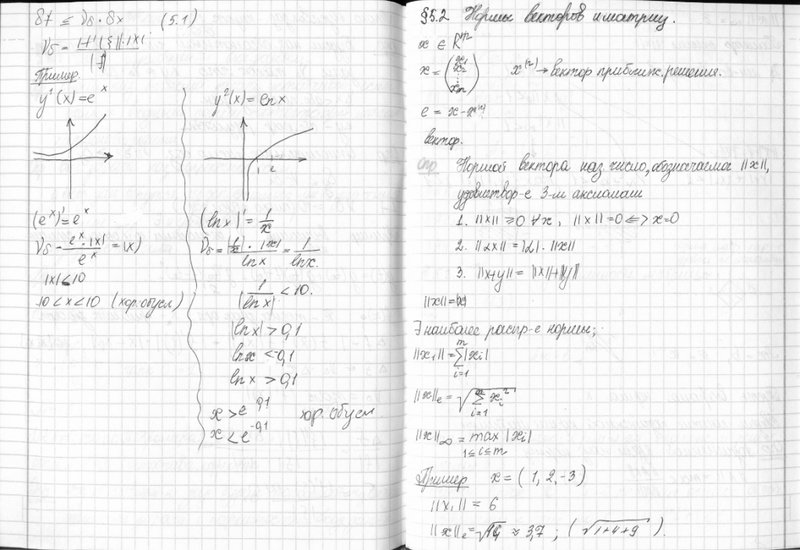 δf ≤ νδ · δx (5.1)
νδ = |f'(ξ)|·|x| / |f|
Пример
y¹(x) = e^x
(e^x)' = e^x
νδ = e^x·|x| / e^x = |x|
|x| < 10
10 < x < 10 (хор. обусл)
y²(x) = ln x
1 2
(ln x)' = 1/x
νδ = |1/x|·|x| / ln x = 1 / ln x
1 / |ln x| < 10.
|ln x| > 0,1
ln x < -0,1
ln x > 0,1
x > e^0,1 хор. обусл.
x < e^-0,1
§5.2 Нормы векторов и матриц.
x ∈ R^m
x = (x₁ x₂ ⋮ xm) x^(*) → вектор приближ. решения.
e = x - x^(*)
вектор.
опр. Нормой вектора наз число, обозначаемое ||x||,
удовлетвор-е 3-м аксиомам
1. ||x|| ≥ 0 ∀x, ||x|| = 0 <=> x = 0
2. ||αx|| = |α|·||x||
3. ||x+y|| = ||x||+||y||
||x|| =
∃ наиболее распр-е нормы;
||x₁|| = Σ_{i=1}^{m} |xi|
||x||e = √(Σ_{i=1}^{m} xi²)
||x||∞ = max_{1≤i≤m} |xi|
Пример x = (1, 2, -3)
||x₁|| = 6
||x||e = √14 ≈ 3,7; (√1+4+9).